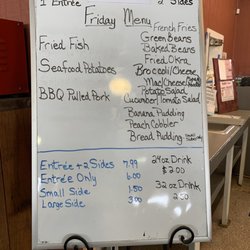 1 Entrée 2 Sides
Friday Menu
French Fries
Green Beans
Fried Fish
Baked Beans
Fried Okra
Seafood Potatoes
Broccoli/Cheese
Mac/Cheese
BBQ Pulled Pork
Potato Salad
Cucumber/Tomato Salad
Banana Pudding
Peach Cobbler
Bread Pudding
Entrée + 2 Sides 7.99
24oz Drink
Entrée Only 6.00
$2.00
Small Side 1.50
32 oz Drink
Large Side 3.00
2.50